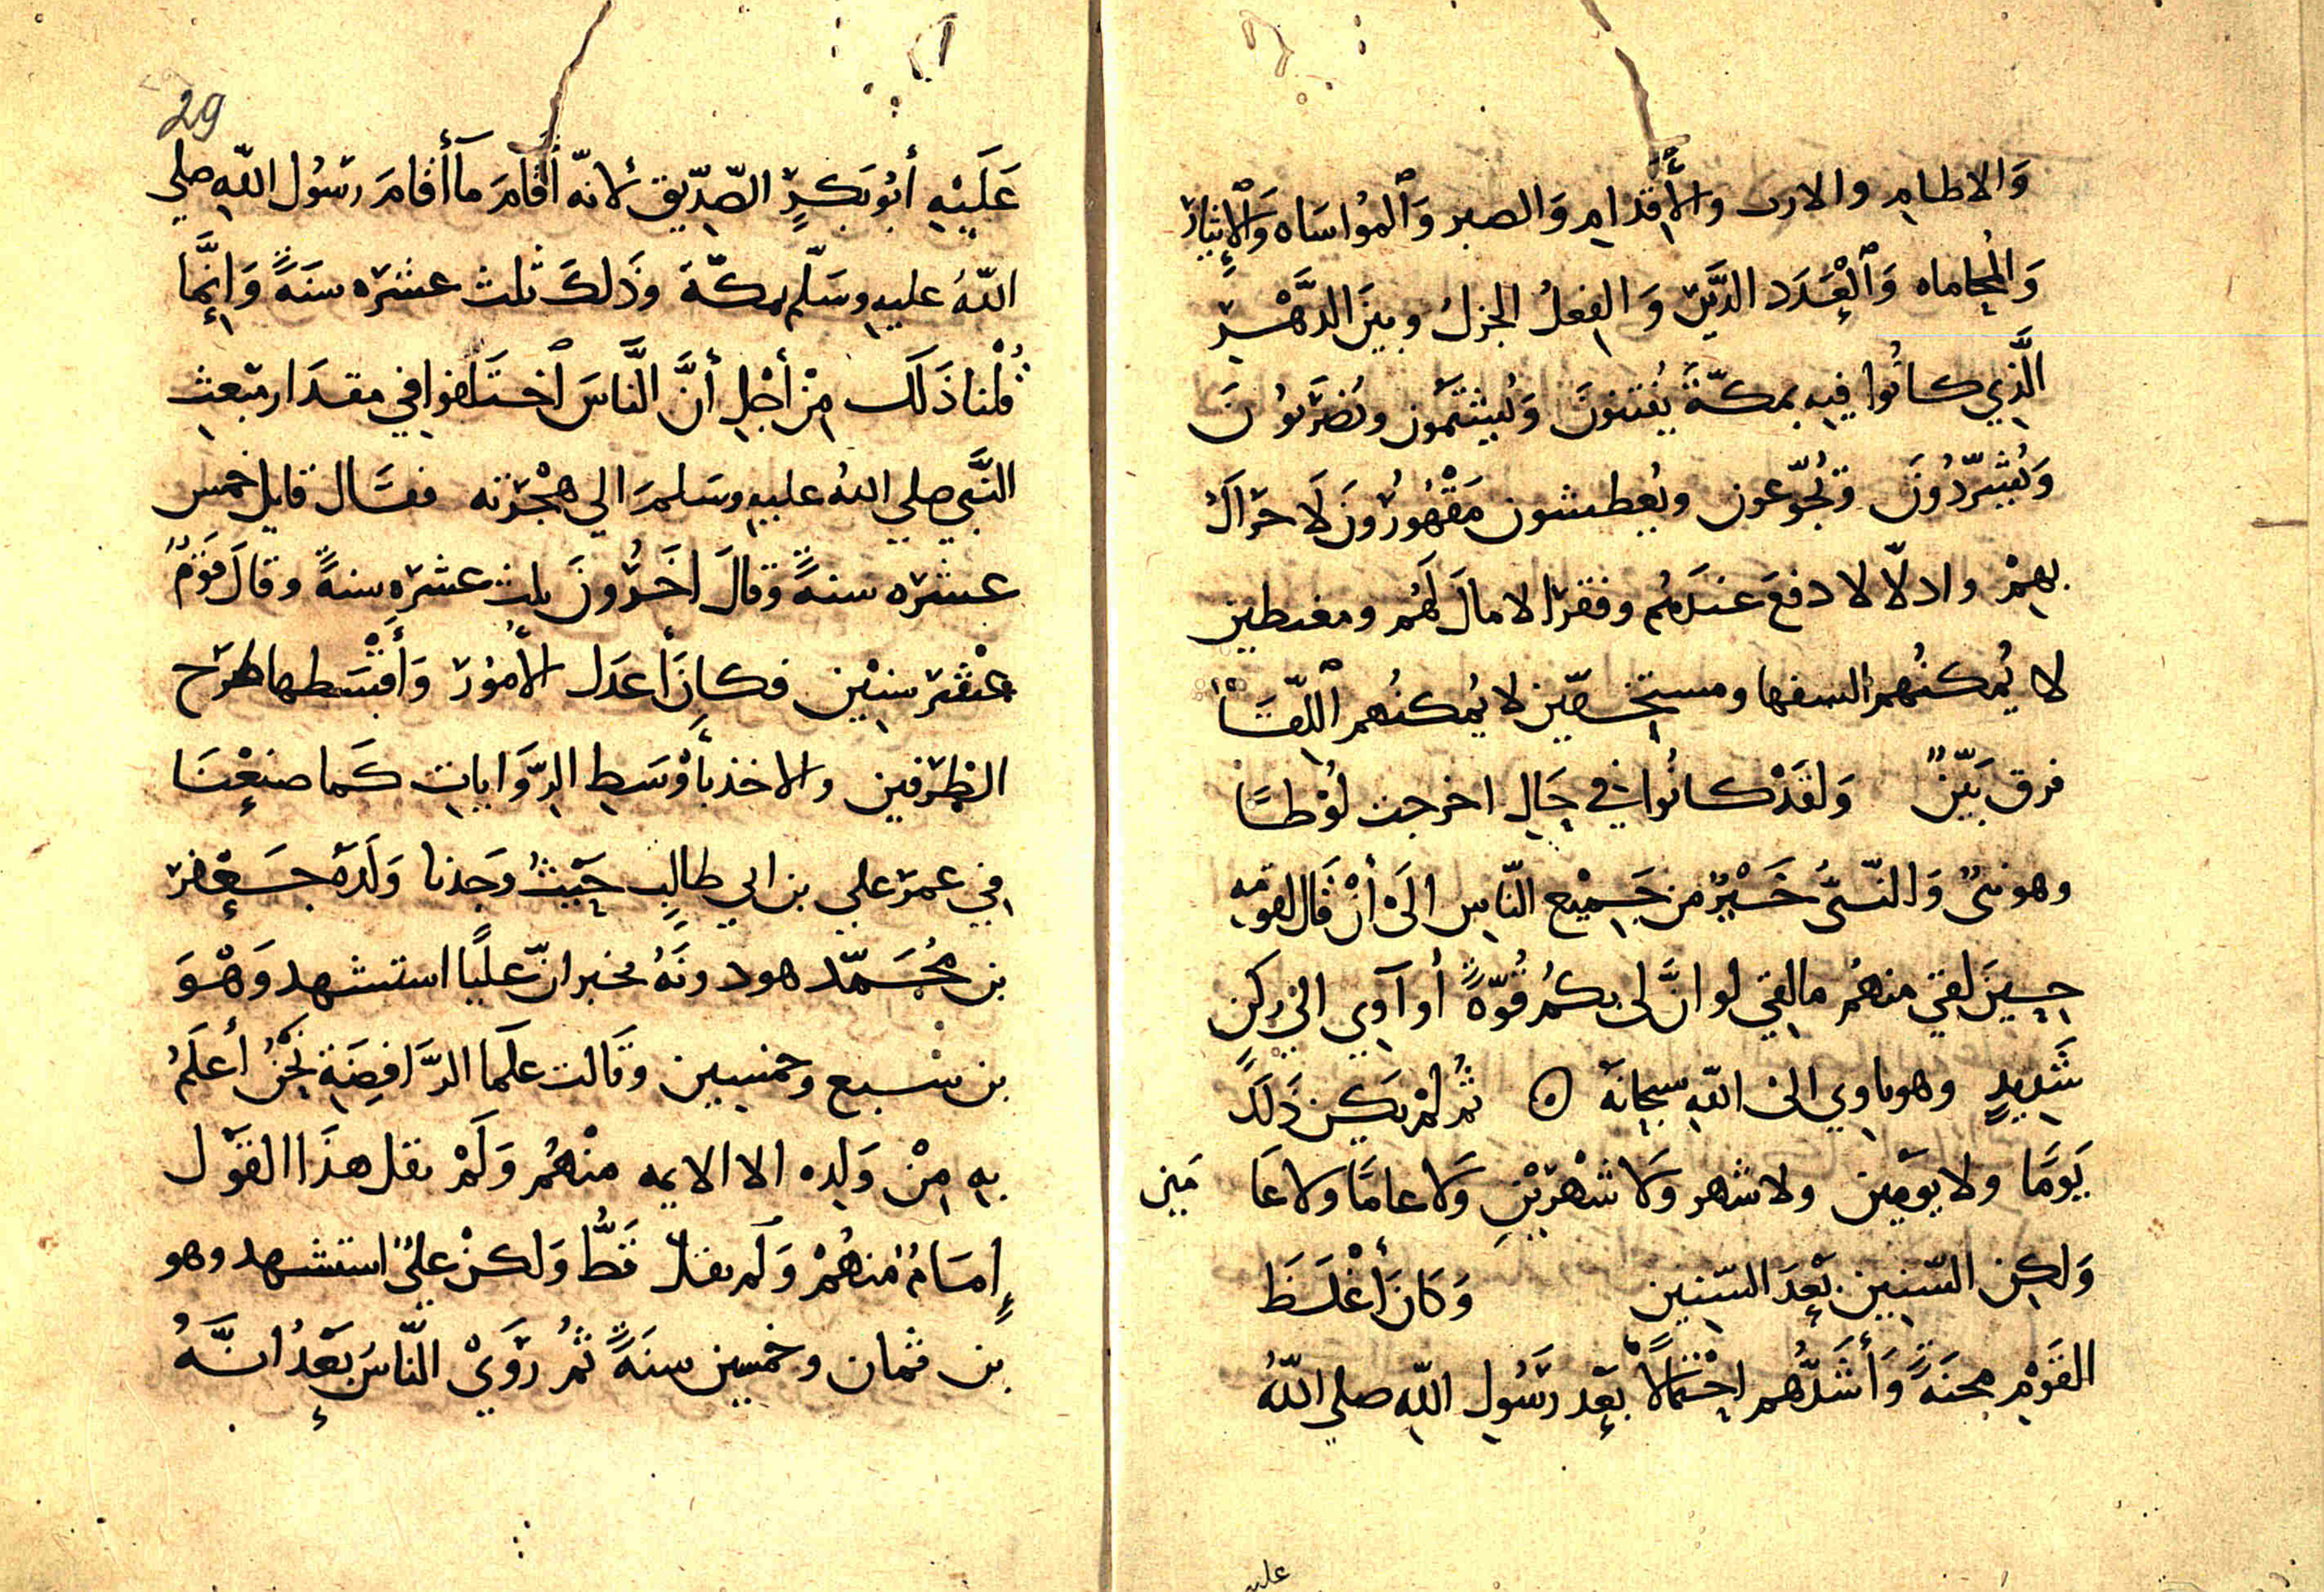 وَالاطامِ والارب وَالأَقدامِ وَالصبر وَٱلموُاسَاه وَالإيثارِ
وَالمحُاماه وَٱلْعَدَد الدَّثِر وَالفِعلُ الجزلُ وبينَ الدَّهْرِ
الَّذِي كانُوا فيِهِ بمكّةَ يُفتنونَ وَيُشتَمُون ويُضرَبوُنَ
وَيُشَرّدُونَ وَيُجَوّعون ويُعطشون مَقْهُورُونَ لَا حَرَاكَ
بِهِمْ واذلّا لا دفعَ عندَهُم وفقرَا لا مالَ لَهُم ومغىطين
لا يُمكنُهمُ السفها ومستخفّين لا يُمكنُهم ٱللِّقَآ
فرق بَيّنٌ وَلقَدْ كانُوا في حَالٍ اخرجت لُوْطًا
وهو نبىٌ وَالنّبىُّ خَيْرٌ من جَمِيْعِ النّاسِ الَىْ أنْ قَال لقومِهِ
حِينَ لقىَ منهُم مالقى لو انَّ لى بكُم قُوّةً أو آوِي الى ركنٍ
شَدِيدٍ وهو ياوِي الى اللّهِ سبحانَهُ ۝ ثُمّ لمْ يكن ذَلَكَ
يَومًا ولا يَومَين ولا شهر وَلا شَهْرَيْنِ وَلا عامًا ولا عَا مَين
وَلكِن السّنِين بَعْدَ السّنِين وَكَانَ أَغْلَظَ
القَوْمِ محنَةً وَأَشَدُّهم احْتمالًا بَعْد رَسُولِ اللّهِ صلي اللّهُ
عليه
29
عَلَيْهِ أبُو بَكرٍ الصّدِّيق لانّه أقَامَ مآ أقَامَ رسُول اللّهِ صلي
اللّهُ عليهِ وسَلّم بمكّةَ وَذَلكَ ثلث عشرَه سَنَةً وَإنَّما
قُلْنا ذَلَك مِنْ أجْلِ أنَّ النَّاسَ ٱختَلفوا في مقدَار مَبعثِ
النَّبي صلي اللهُ عليهِ وسَلم الي هجْرَته فقَال قايل خمس
عشرَه سنةً وَقالَ اخَرُونَ ثلث عشرَهِ سنةً وقالَ قَومٌ
عشْر سنيْن فكانَ أعدَل الأمُورَ وَأقْسَطها طرَح
الطرَفين والاخذ بأوْسَطِ الرِّوَاياتِ كَما صنعْنَا
في عمر علي بن ابي طالبٍ حَيْثُ وَجَدنا وَلَدَهُ جَعْفر
بن محُمَّد هود ونَهُ يخبر انّ عليًا استشهد وَهْوَ
بن سْبع وخمسين وقَالت علمَا الرَّافضَةِ نَحْنُ أعلَمُ
بهِ مِنْ وَلِدِه الا الايمه منْهُم وَلَمْ يقل هذَا القَوَل
إمَامٌ منهُمْ وَلَم يقلْ قَطُّ وَلكنْ علىٌ استشهد وهو
بن ثمان وخمسين سنةً ثمُ رَوَىْ النّاسُ بَعْدُ انَّهُ